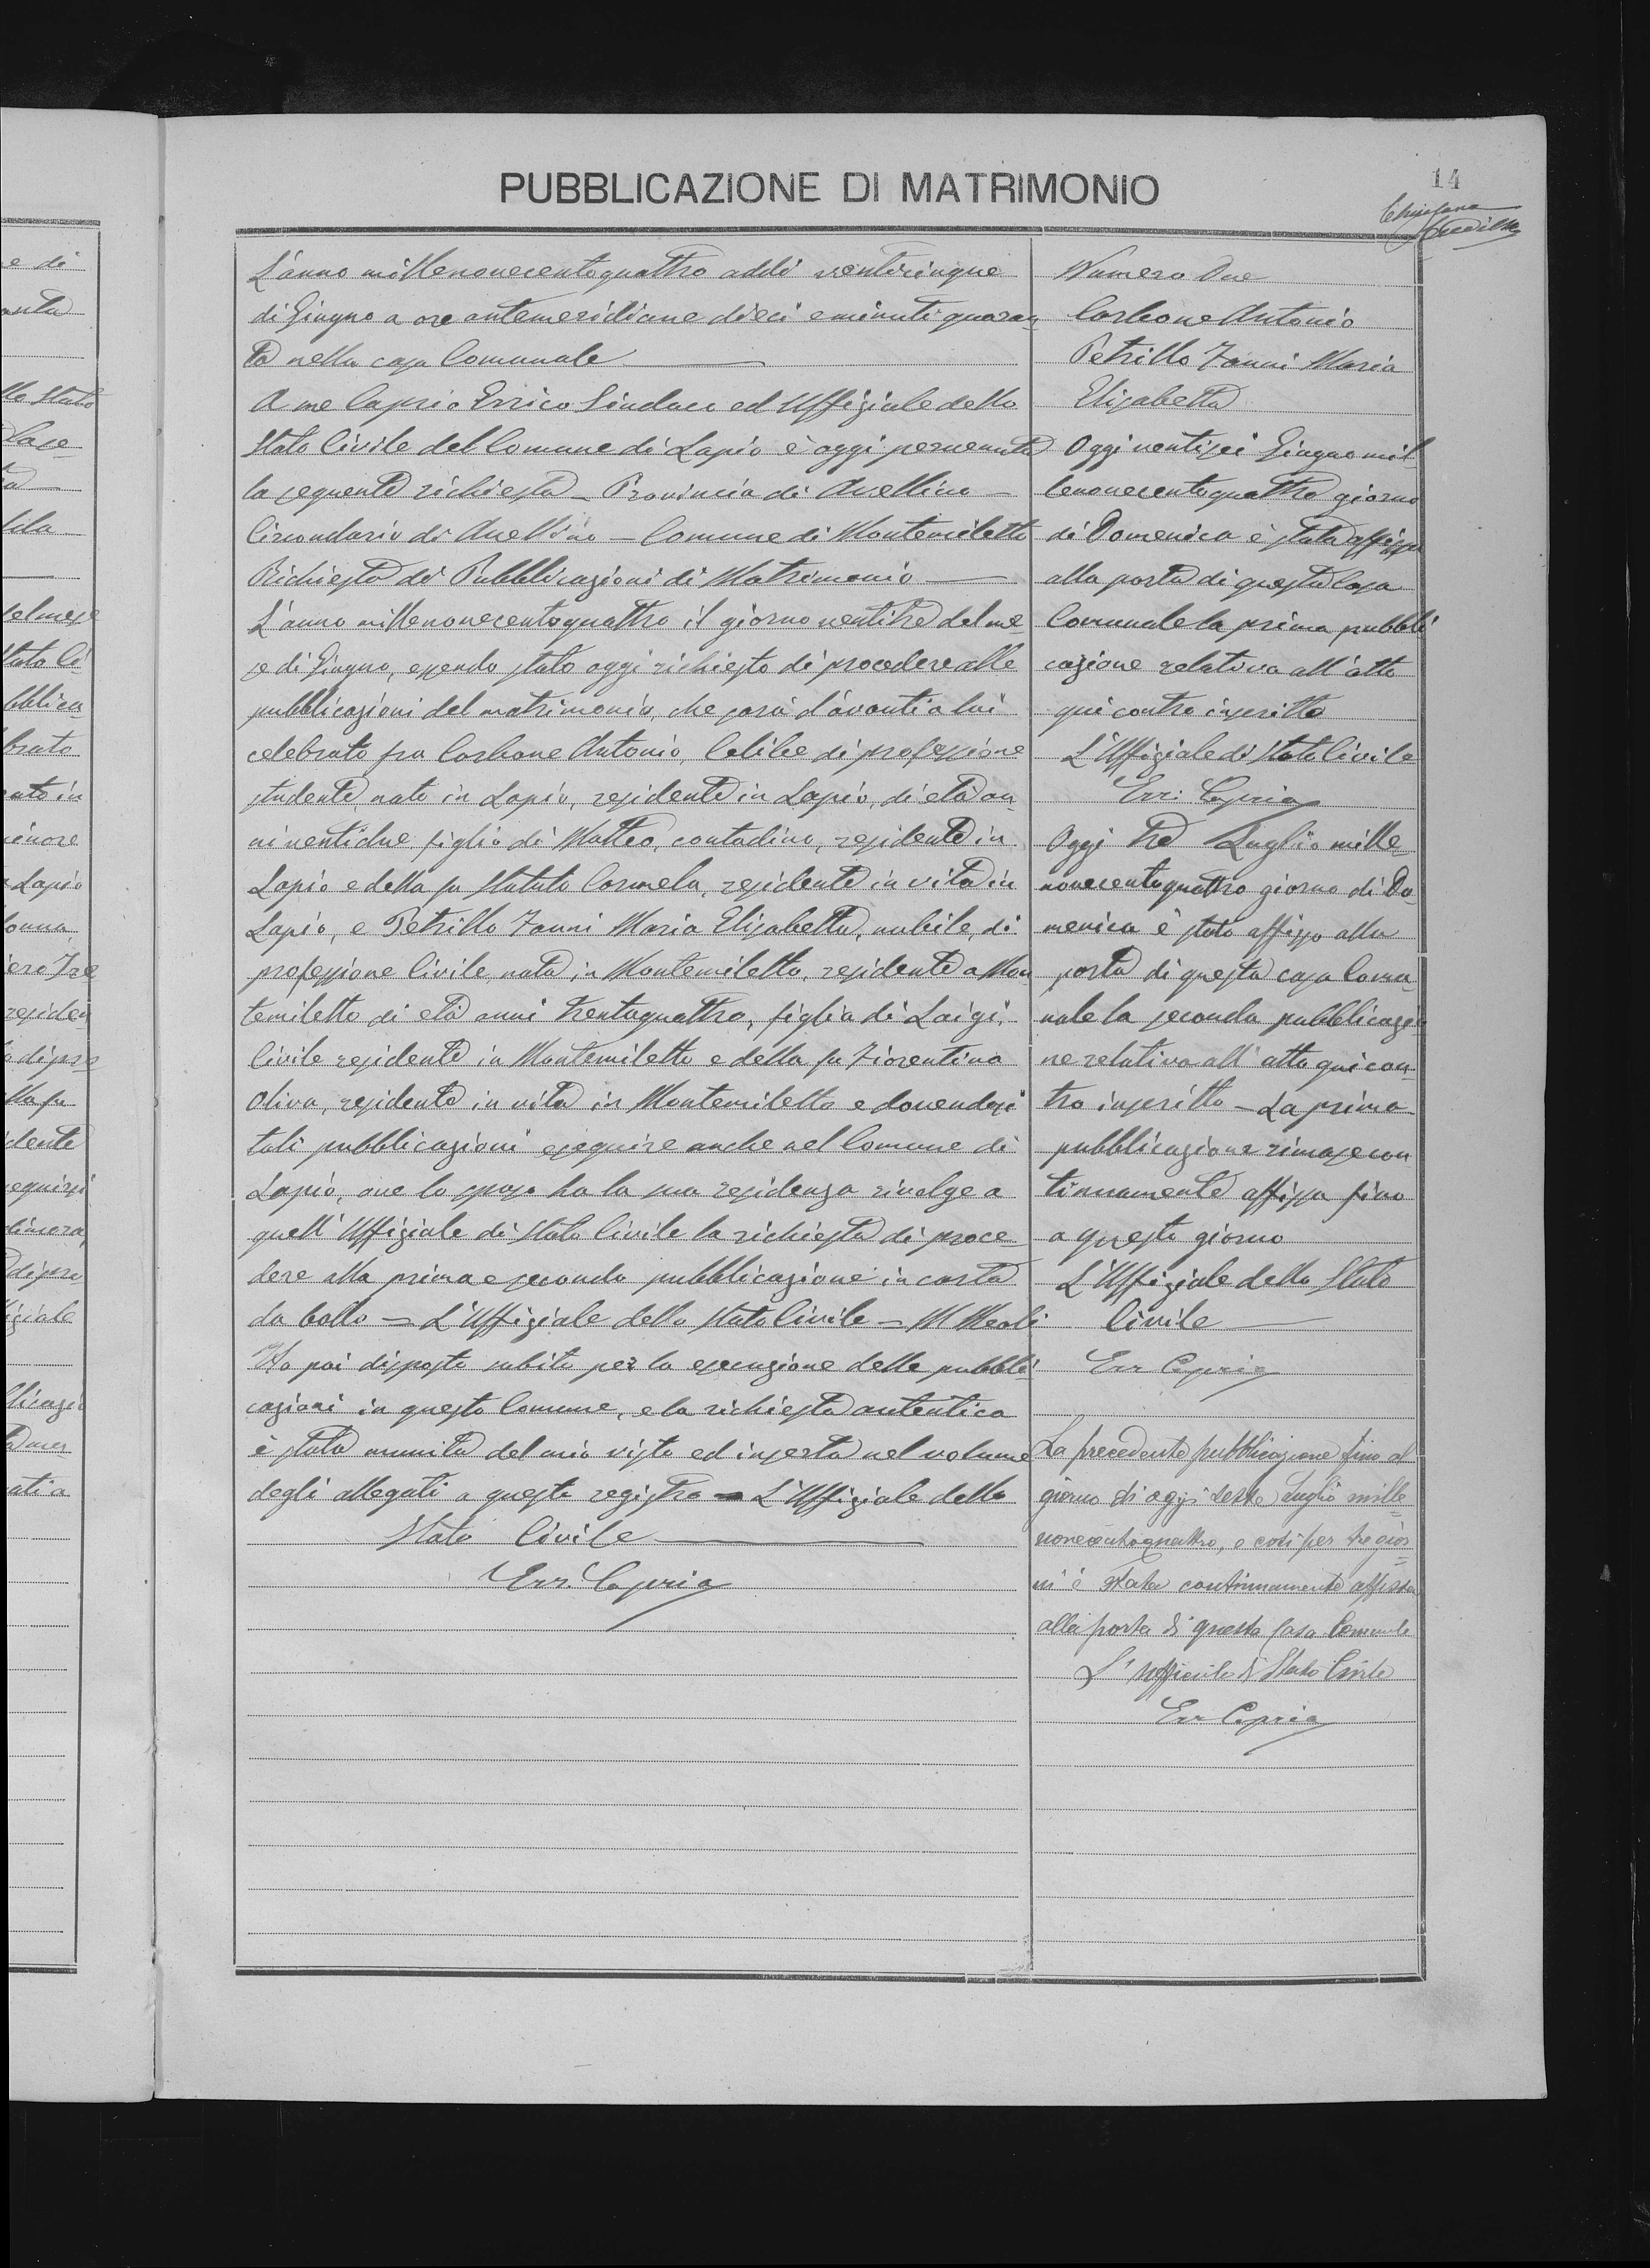 PUBBLICAZIONE DI MATRIMONIO
14
L'anno millenovecentoquattro addi venticinque
di Giugno a ore antemeridiane dieci e minuti quaran
ta nella casa Comunale
A me Caprio Errico Sindaco ed Uffiziale dello
Stato Civile del Comune di Lapio è oggi pervenuta
la seguente richiesta - Provincia di Avellino -
Circondario di Avellino - Comune di Montemiletto
Richiesta di Pubblicazioni di Matrimonio
L'anno millenovecentoquattro il giorno ventitre del me-
se di Giugno, essendo stato oggi richiesto di procedere alle
pubblicazioni del matrimonio, che sarà d'avanti a lui
celebrato fra Carbone Antonio, Celibe di professione
studente, nato in Lapio, residente in Lapio, di età an
ni ventidue figlio di Matteo, contadino, residente in
Lapio e della fu Statuto Carmela, residente in vita in
Lapio, e Petrillo Zanni Maria Elisabetta, nubile, di
professione Civile, nata in Montemiletto, residente a Mon
temiletto di età anni trentaquattro, figlia di Luigi,
Civile residente in Montemiletto e della fu Fiorentino
Oliva, residente in vita in Montemiletto e dovendosi
tali pubblicazioni eseguire anche nel Comune di
Lapio, ove lo sposo ha la sua residenza rivolge a
quell'Uffiziale di Stato Civile la richiesta di proce-
dere alla prima e seconda pubblicazione in carta
da bollo = L'Uffiziale dello Stato Civile = M Meoli
Ho poi disposto subito per la esecuzione delle pubbli
cazioni in questo Comune, e la richiesta autentica
è stata munita del mio visto ed inserta nel volume
degli allegati a questo registro = L'Uffiziale dello
Stato Civile
Err. Caprio
Numero Due
Carbone Antonio
Petrillo Zanni Maria
Elisabetta
Oggi ventisei Giugno mil
lenovecentoquattro giorno
di Domenica è stata affissa
alla porta di questa Casa
Comunale la prima pubbli
cazione relativa all'atto
qui contro inscritto
L'Uffiziale di Stato Civile
Err: Caprio
Oggi tre Luglio mille-
novecentoquattro giorno di Do
menica è stato affisso alla
porta di questa casa Comu-
nale la seconda pubblicazio
ne relativa all'atto qui con-
tro inscritto - La prima
pubblicazione rimase con
tinuamente affissa fino
a questo giorno
L'Uffiziale dello Stato
Civile
Err Caprio
La precedente pubblicazione fino al
giorno di oggi sesto Luglio mille
novecentoquattro, e così per tre gior
ni è stata continuamente affissa
alla porta di questa Casa Comunale
L'Ufficiale di Stato Civile
Err Caprio